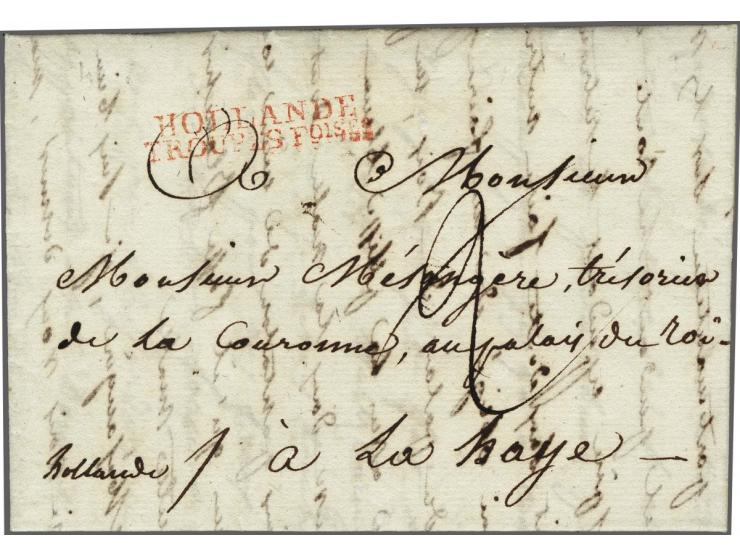 HOLLANDE
TROUPES F.OISES
A Monsieur
Monsieur Mésangère, trésorier
de La Couronne, au palais du roi
à La haye
hollande